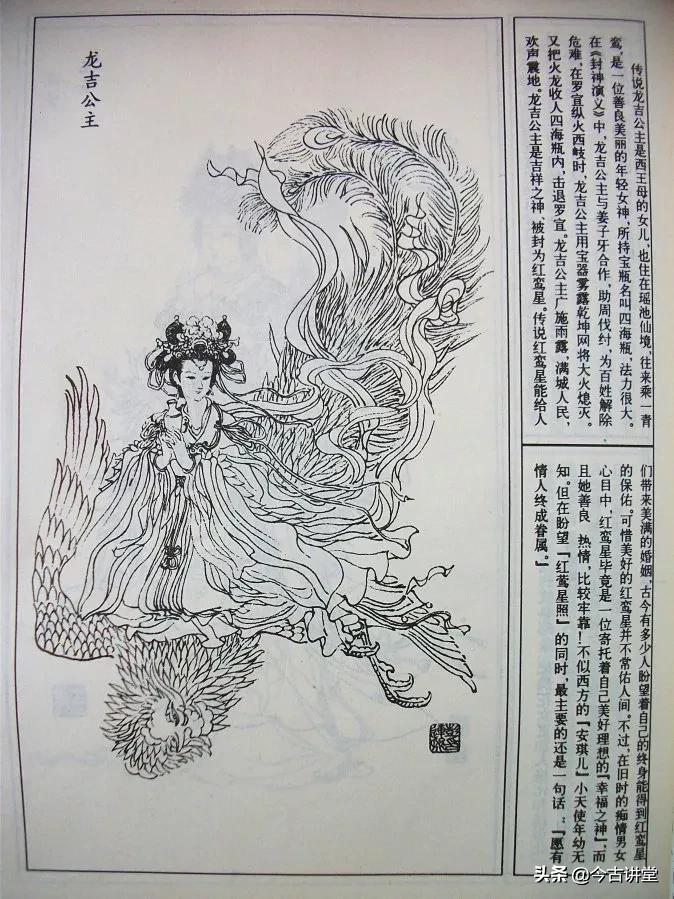 龙吉公主
传说龙吉公主是西王母的女儿,也住在瑶池仙境,往来乘一青
鸾,是一位善良美丽的年轻女神,所持宝瓶名叫四海瓶,法力很大。
在《封神演义》中,龙吉公主与姜子牙合作,助周伐纣,为百姓解除
危难,在罗宣纵火西岐时,龙吉公主用宝器雾露乾坤网将大火熄灭。
又把火龙收人四海瓶内,击退罗宣。龙吉公主广施雨露,满城人民,
欢声震地。龙吉公主是吉祥之神,被封为红鸾星。传说红鸾星能给人
们带来美满的婚姻,古今有多少人盼望着自己的终身能得到红鸾星
的保佑。可惜美好的红鸾星并不常佑人间。不过,在旧时的痴情男女
心目中,红鸾星毕竟是一位寄托着自己美好理想的「幸福之神」,而
且她善良 热情,比较牢靠!不似西方的「安琪儿」小天使年幼无
知。但在盼望「红莺星照」的同时,最主要的还是一句话:「愿有
情人终成眷属。」
头条 @今古讲堂